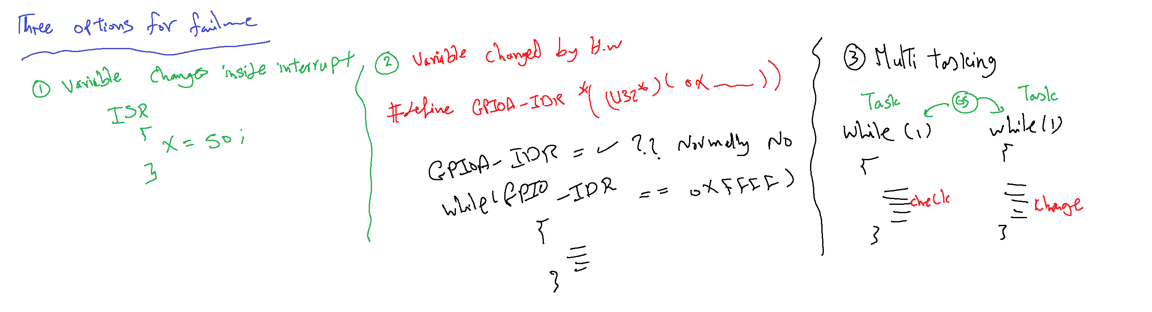 Three options for failure
① Variable changes inside interrupt
ISR
{
x = 50;
}
② Variable changed by H.w
#define GPIOA-IDR *((U32*)(0x___))
GPIOA-IDR = ✓ ?? Normally No
while(GPIO-IDR == 0xFFFF)
{
}
③ Multi tasking
Task Task
while(1) while(1)
{ {
check change
} }